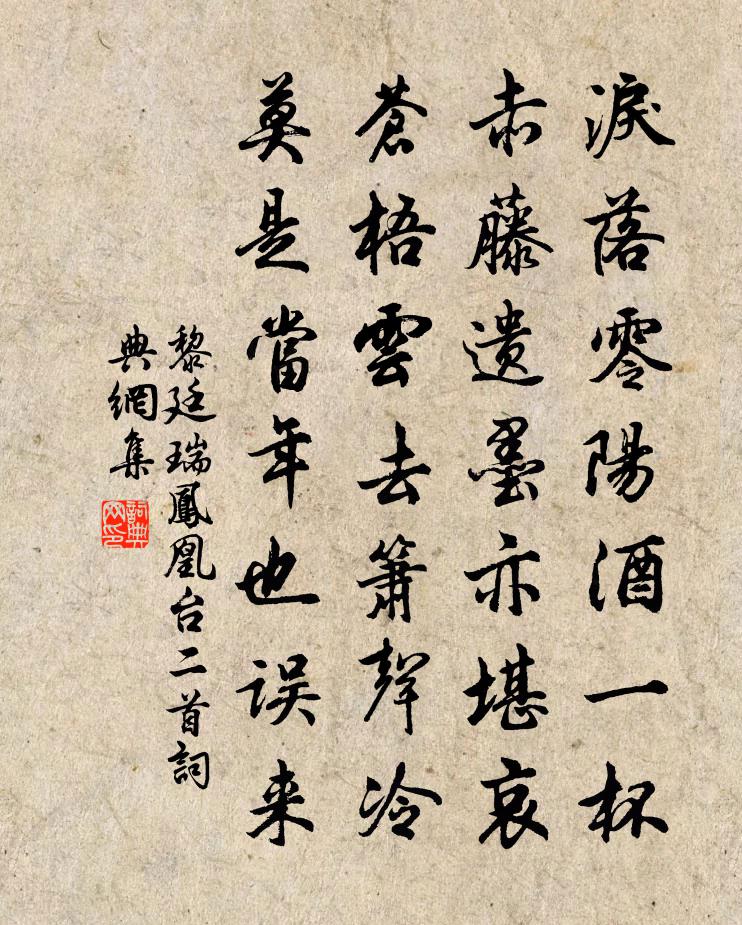 淚落零陽酒一杯
赤藤遗墨亦堪哀
蒼梧雲去簫聲冷
莫是當年也误来
黎廷瑞鳳凰台二首詞
典網集
詞典
网印